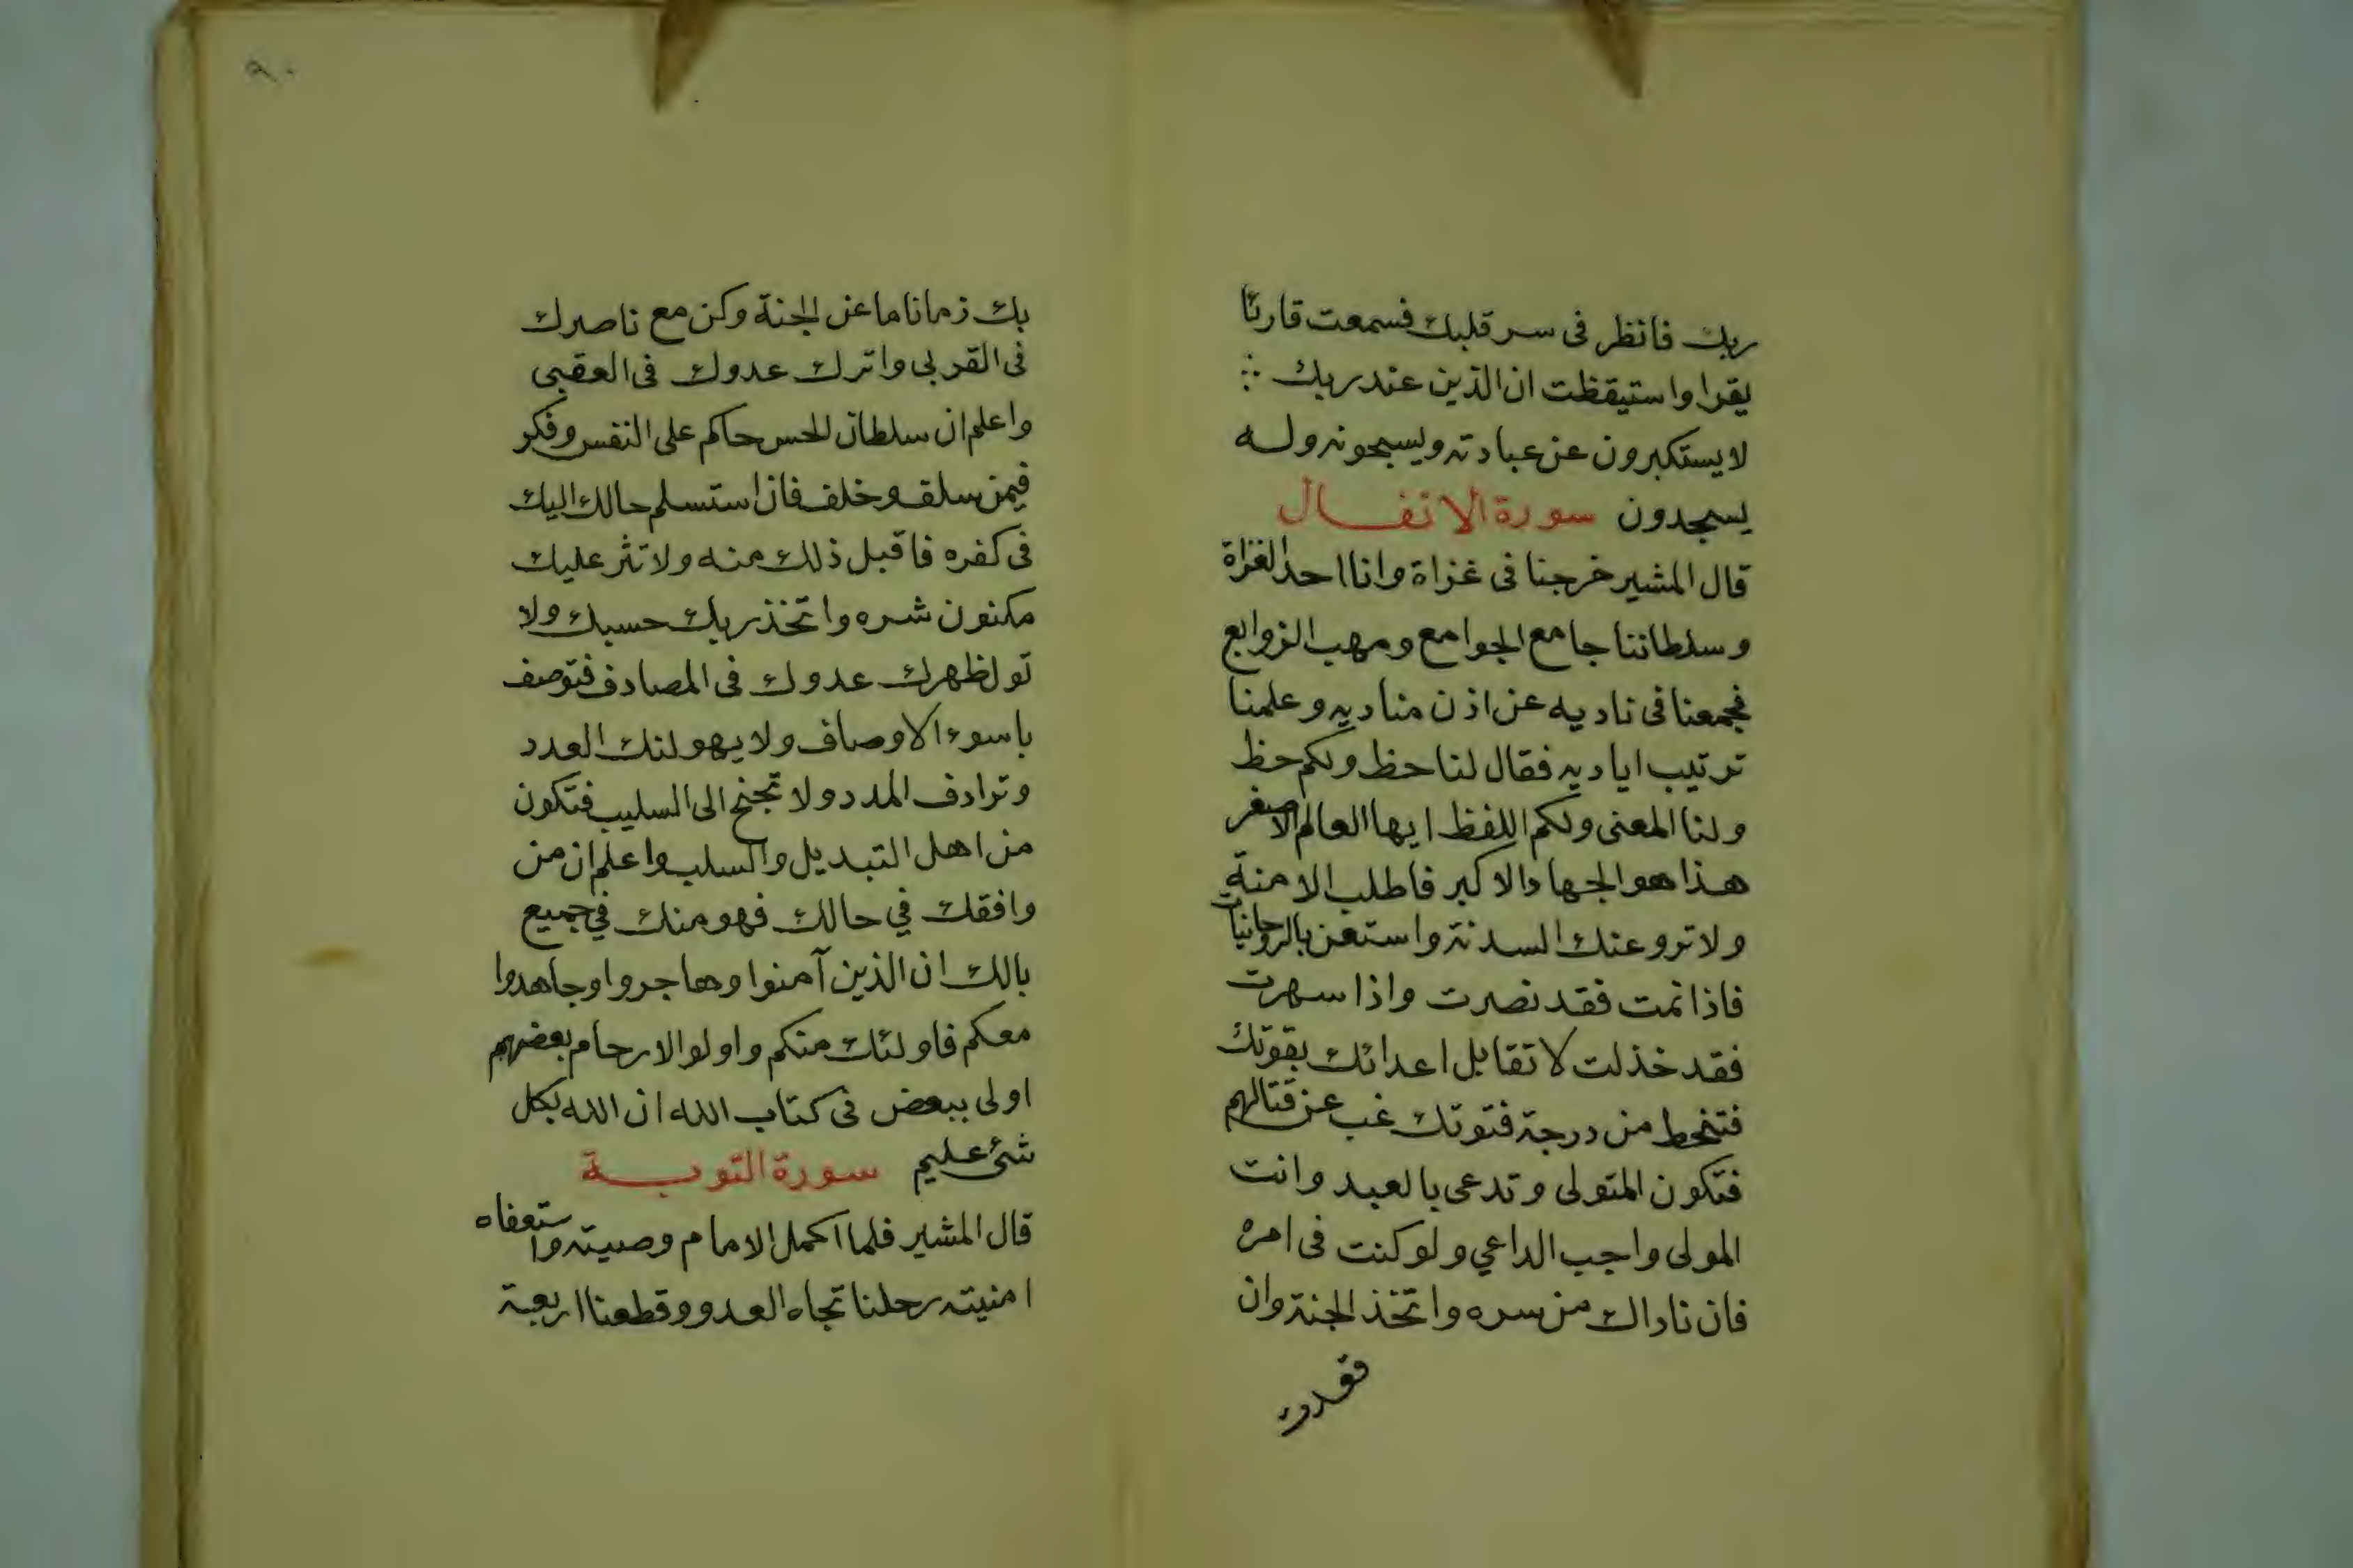 ربك فانظر فى سر قلبك فسمعت قارئا
يقرا واستيقظت ان الذين عند ربك
لا يستكبرون عن عبادته ويسبحونه وله
يسجدون سورة الانفال
قال المشير خرجنا فى غزاة وانا احد الغزاة
وسلطاننا جامع الجوامع ومهب الزوابع
فجمعنا فى ناديه عن اذن مناديه وعلمنا
ترتيب اياديه فقال لنا حظ ولكم حظ
ولنا المعنى ولكم اللفظ ايها العالم الاصغر
هذا هو الجهاد الاكبر فاطلب الامنة
ولا تروعنك السدنة واستعن بالروحانيات
فاذا نمت فقد نصرت واذا سهرت
فقد خذلت لا تقابل اعدائك بقوتك
فتنحط من درجة فتوتك غب عن قتالهم
فتكون المتولى وتدعى بالعبد وانت
المولى واجب الداعي ولو كنت فى امره
فان ناداك من سره واتخذ الجنة وان
٩٠
بك زمانا ما عن الجنة وكن مع ناصرك
فى القربى واترك عدوك فى العقبى
واعلم ان سلطان الحس حاكم على النفس وفكر
فيمن سلف وخلف فان استسلم حالك اليك
فى كفره فاقبل ذلك منه ولا تثر عليك
مكنون شره واتخذ ربك حسبك ولا
تول ظهرك عدوك فى المصادف فتوصف
باسوء الاوصاف ولا يهولنك العدد
وترادف المدد ولا تجنح الى السليب فتكون
من اهل التبديل والسلب واعلم ان من
وافقك في حالك فهو منك في جميع
بالك ان الذين آمنوا وهاجروا وجاهدوا
معكم فاولئك منكم واولو الارحام بعضهم
اولى ببعض فى كتاب الله ان الله بكل
شئ عليم سورة التوبة
قال المشير فلما اكمل الامام وصيته واستعفاه
امنيته رحلنا تجاه العدو وقطعنا اربعة